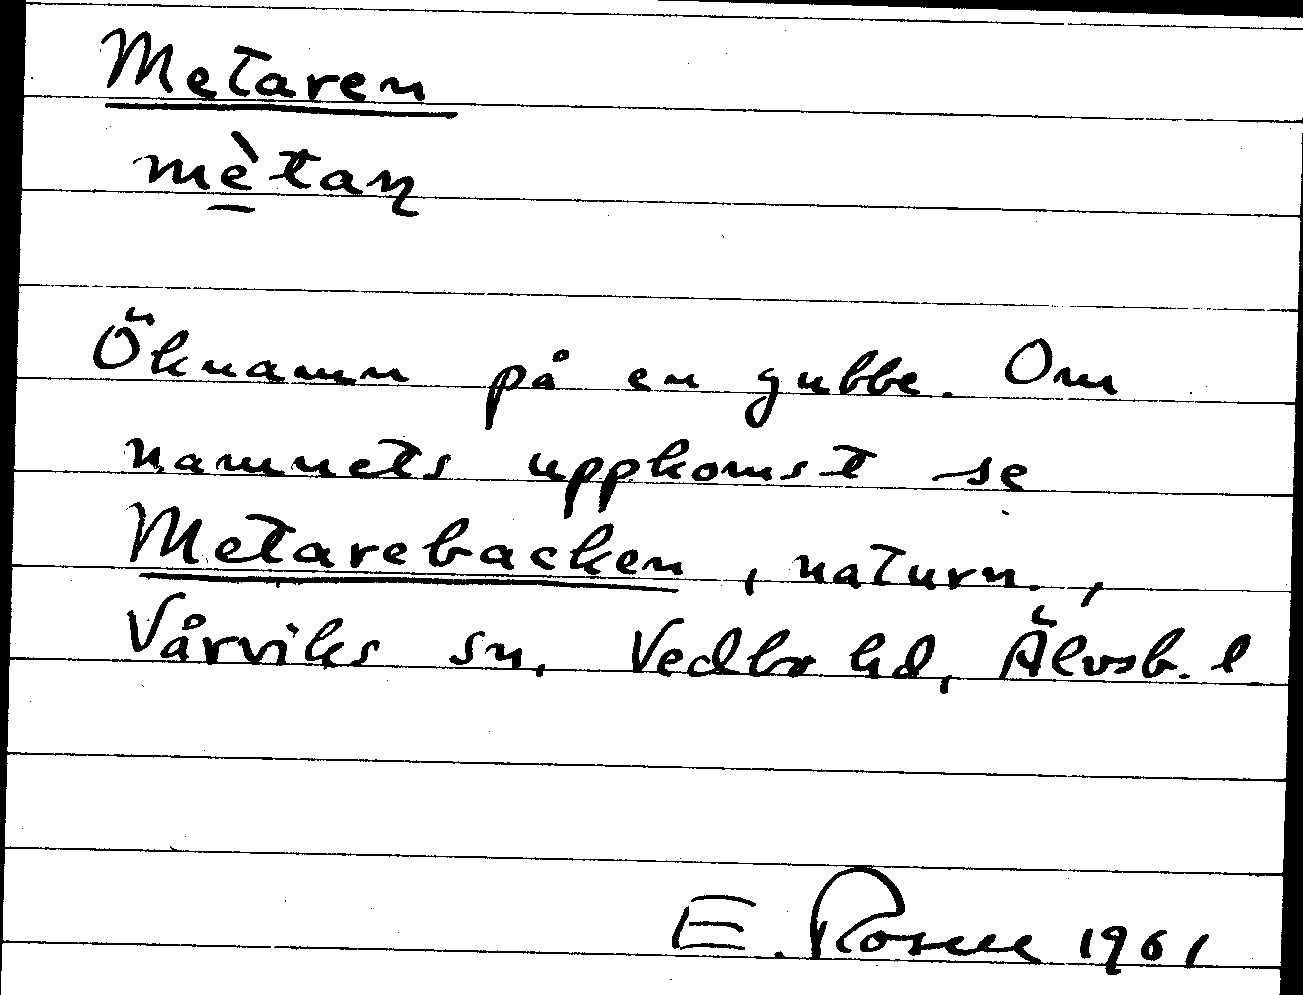 Metaren
mè̱taɳ
Öknamn på en gubbe. Om
namnets uppkomst se
Metarebacken, naturn.,
Vårviks sn, Vedbo hd, Älvsb. l.
E. Rosell 1961